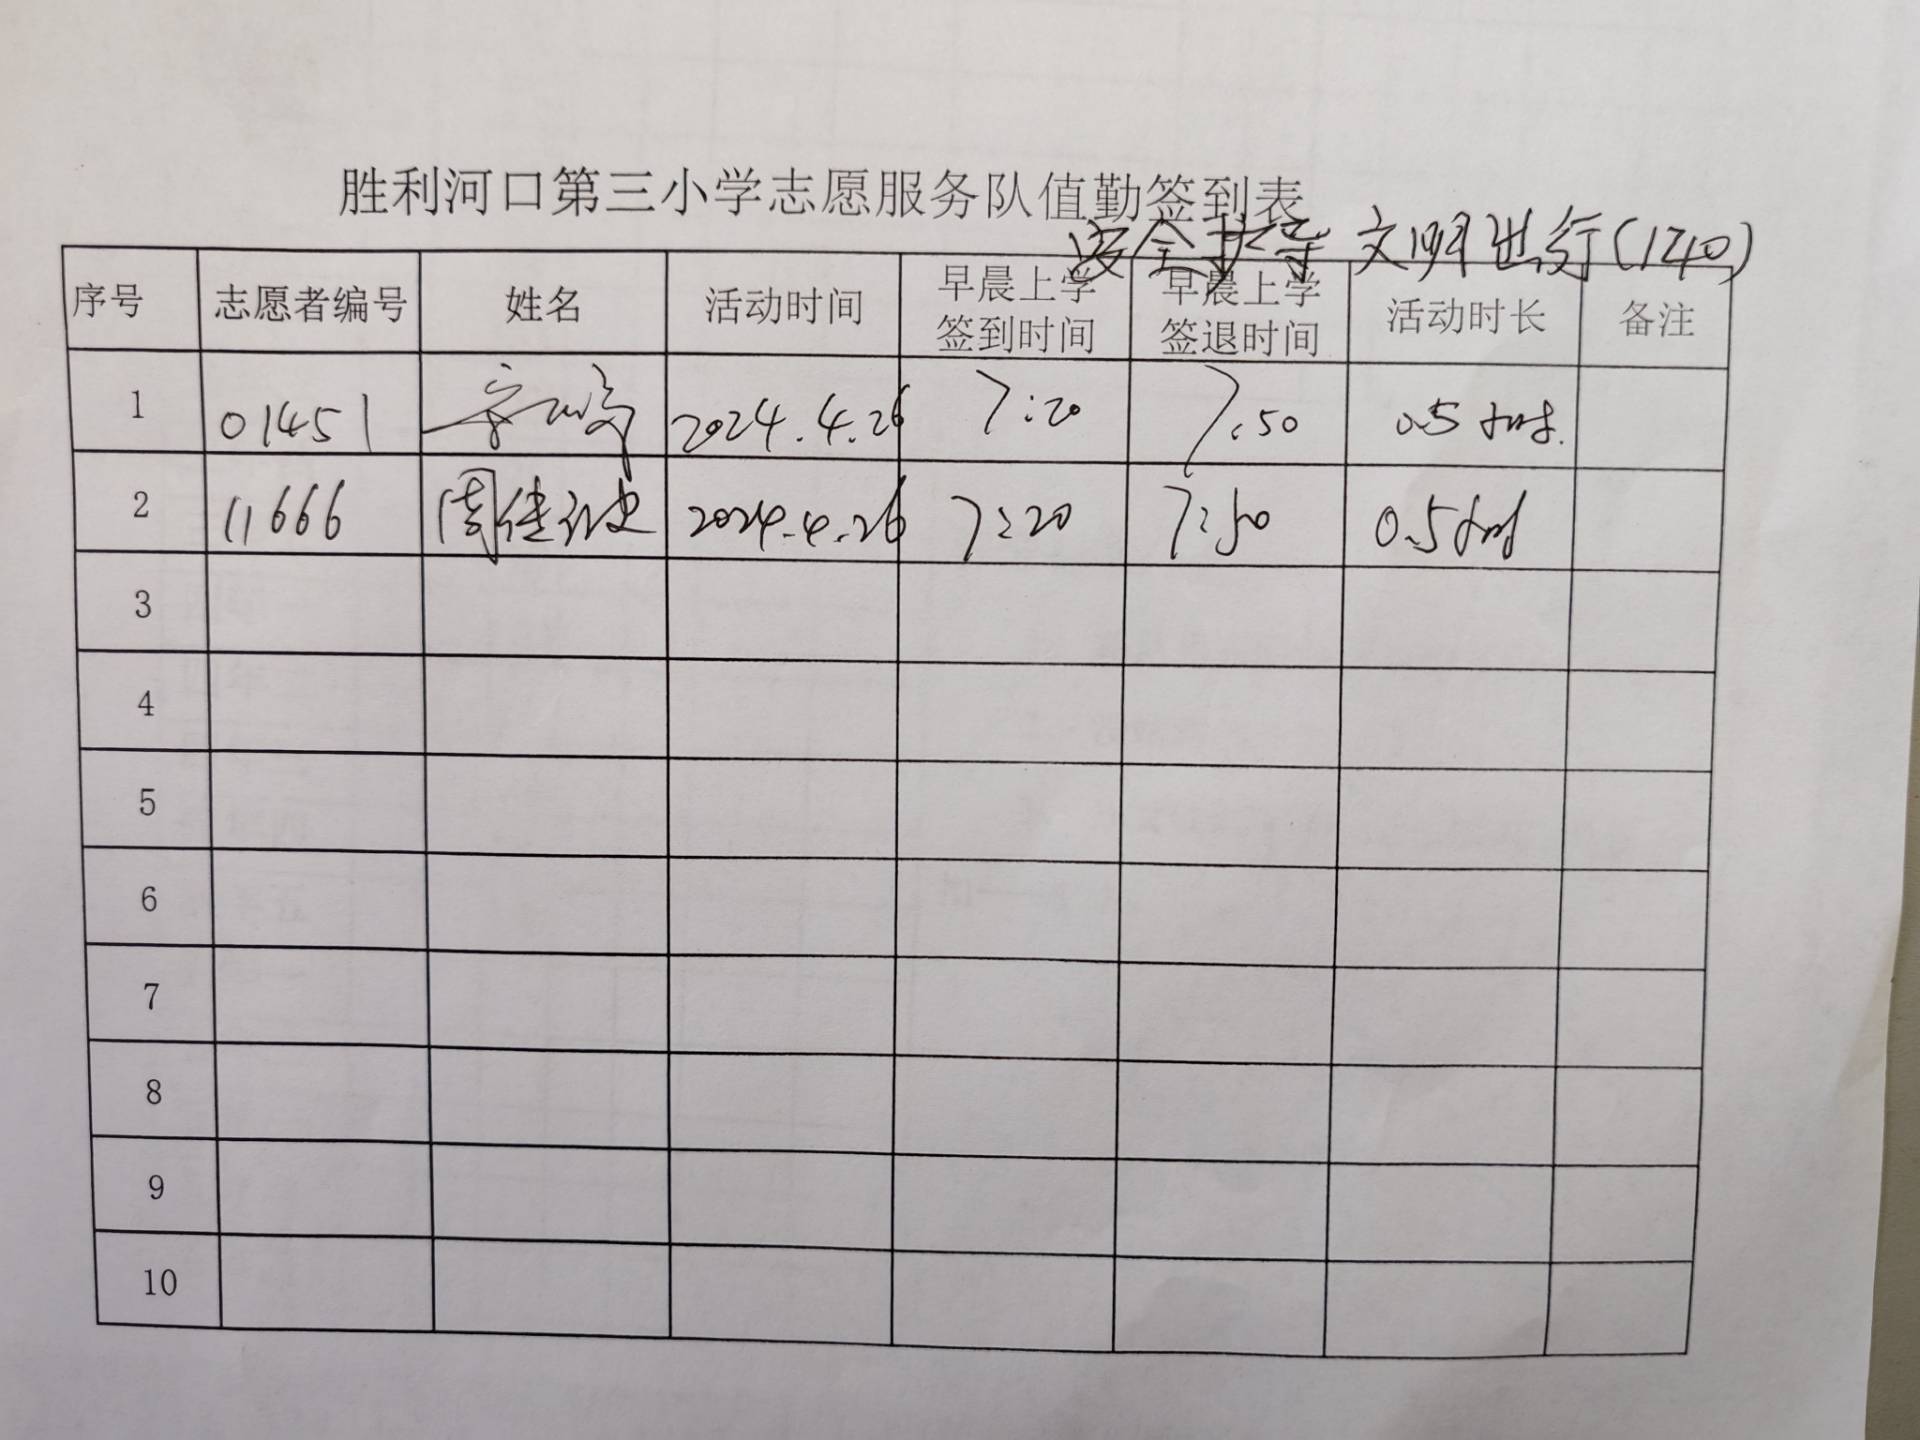 胜利河口第三小学志愿服务队值勤签到表
安全护导 文明出行(1740)
序号 志愿者编号 姓名 活动时间 早晨上学签到时间 早晨上学签退时间 活动时长 备注
1 01451 2024.4.26 7:20 7:50 0.5小时
2 11666 周佳 2024.4.26 7:20 7:50 0.5小时
3
4
5
6
7
8
9
10